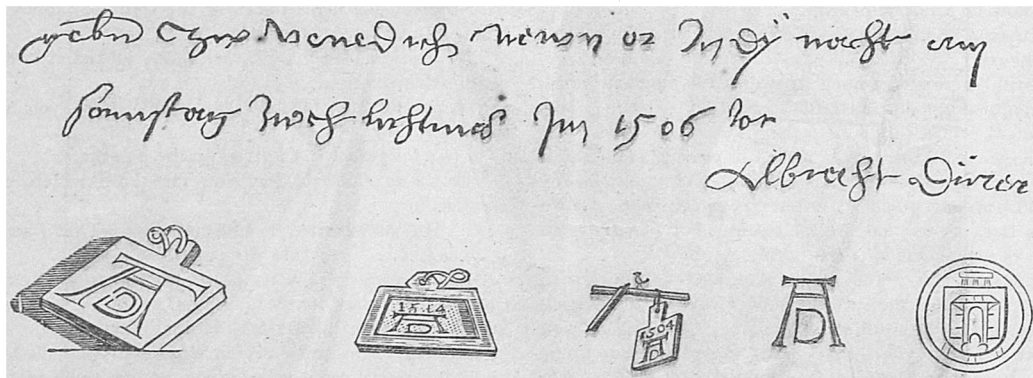 gebn Czw Venedich newn or In dÿ nacht am
samstag Noch lichtmes Im 1506 Jor
Albrecht Dürer
AD
1514
AD
1504
AD
AD